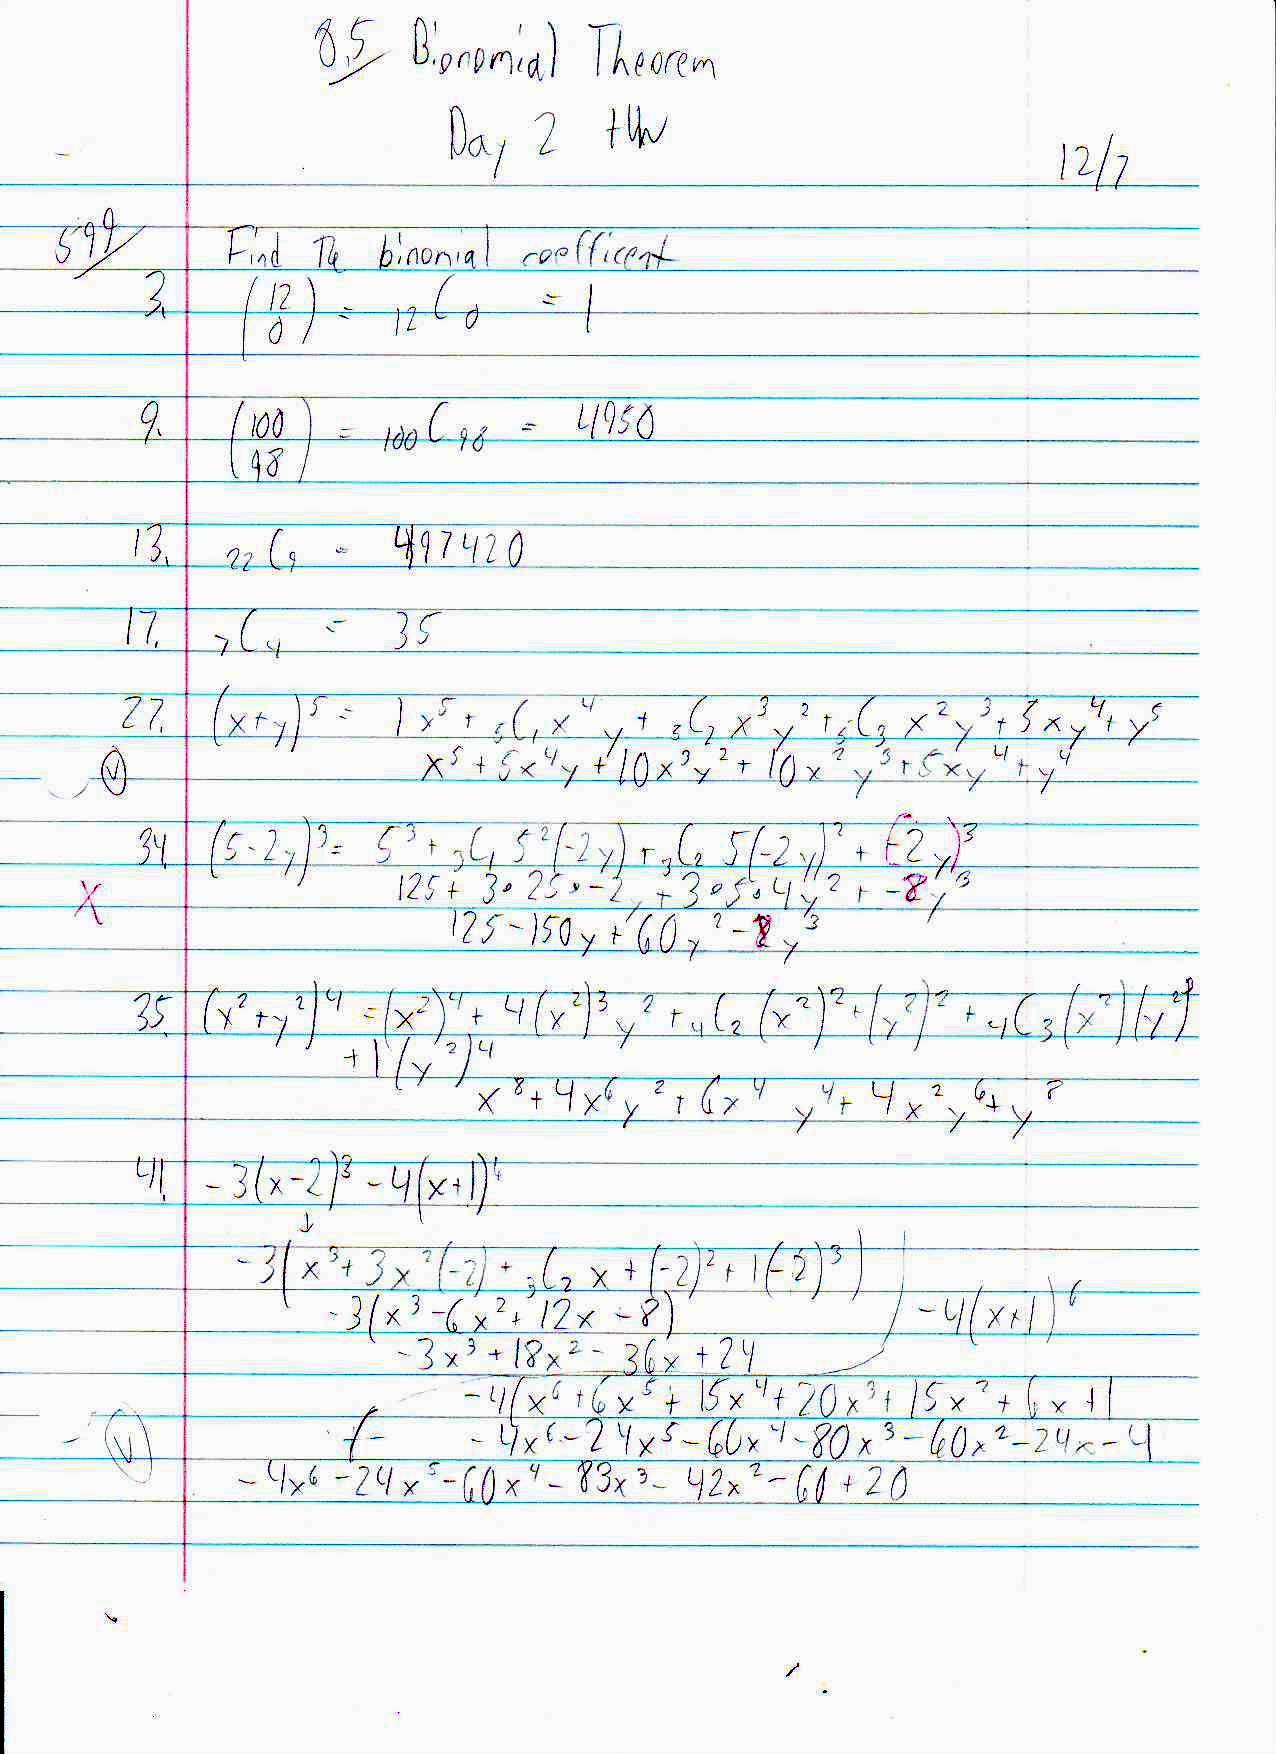 8.5 Binomial Theorem
Day 2 HW
12/7
599 Find the binomial coefficent
3. (12 0) = ₁₂C₀ = 1
9. (100 98) = ₁₀₀C₉₈ = 4950
13. ₂₂C₉ = 497420
17. ₇C₄ = 35
27. (x+y)⁵ = 1x⁵ + ₅C₁x⁴y + ₅C₂x³y² + ₅C₃x²y³ + 5xy⁴ + y⁵
x⁵ + 5x⁴y + 10x³y² + 10x²y³ + 5xy⁴ + y⁴
34. (5-2y)³ = 5³ + ₃C₁5²(-2y) + ₃C₂5(-2y)² + (-2y)³
X 125 + 3•25•-2y + 3•5•4y² + -8y³
125 - 150y + 60y² - 8y³
35. (x²+y²)⁴ = (x²)⁴ + 4(x²)³y² + ₄C₂(x²)²+(y²)² + ₄C₃(x²)(y²)³
+1(y²)⁴
x⁸ + 4x⁶y² + 6x⁴y⁴ + 4x²y⁶ + y⁸
41. -3(x-2)³ - 4(x+1)⁶
-3(x³ + 3x²(-2) + ₃C₂x + (-2)² + 1(-2)³)
-3(x³ - 6x² + 12x - 8) -4(x+1)⁶
-3x³ + 18x² - 36x + 24
-4(x⁶ + 6x⁵ + 15x⁴ + 20x³ + 15x² + 6x + 1
-4x⁶ - 24x⁵ - 60x⁴ - 80x³ - 60x² - 24x - 4
-4x⁶ - 24x⁵ - 60x⁴ - 83x³ - 42x² - 60 + 20